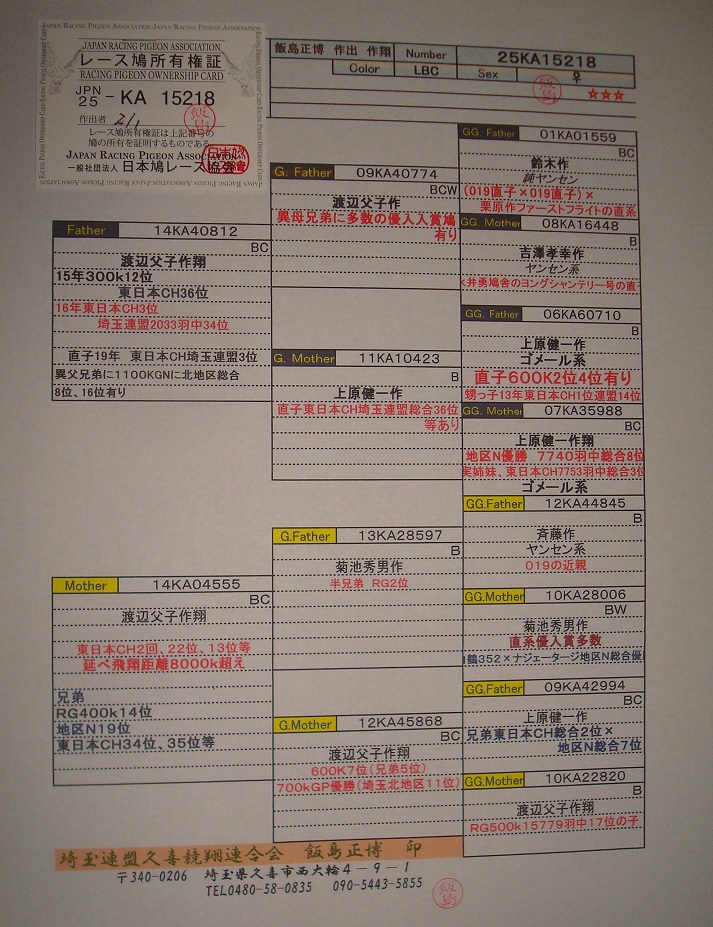 JAPAN RACING PIGEON ASSOCIATION
レース鳩所有権証
RACING PIGEON OWNERSHIP CARD
JPN
25 - KA 15218
作出者
レース鳩所有権証は上記番号の
鳩の所有を証明するものである
JAPAN RACING PIGEON ASSOCIATION
一般社団法人 日本鳩レース協会
飯島正博 作出 作翔 Number 25KA15218
Color LBC Sex ♀
飯島
☆☆☆
Father 14KA40812
BC
渡辺父子作翔
15年300k12位
東日本CH36位
16年東日本CH3位
埼玉連盟2033羽中34位
直子19年 東日本CH埼玉連盟3位
異父兄弟に1100KGNに北地区総合
8位、16位有り
Mother 14KA04555
BC
渡辺父子作翔
東日本CH2回、22位、13位等
延べ飛翔距離8000k超え
兄弟
RG400k14位
地区N19位
東日本CH34位、35位等
G. Father 09KA40774
BCW
渡辺父子作
異母兄弟に多数の優入入賞鳩
有り
G. Mother 11KA10423
B
上原健一作
直子東日本CH埼玉連盟総合36位
等あり
G.Father 13KA28597
B
菊池秀男作
半兄弟 RG2位
G.Mother 12KA45868
BC
渡辺父子作翔
600K7位(兄弟5位)
700kGP優勝(埼玉北地区11位)
GG. Father 01KA01559
BC
鈴木作
純ヤンセン
(019直子×019直子)×
栗原作ファーストフライトの直系
GG. Mother 08KA16448
B
吉澤孝幸作
ヤンセン系
井勇鳩舎のヨングシャンテリー号の直
GG. Father 06KA60710
B
上原健一作
ゴメール系
直子600K2位4位有り
甥っ子13年東日本CH1位連盟14位
GG. Mother 07KA35988
BC
上原健一作翔
地区N優勝 7740羽中総合8位
実姉妹、東日本CH7753羽中総合3位
ゴメール系
GG.Father 12KA44845
B
斉藤作
ヤンセン系
019の近親
GG.Mother 10KA28006
BW
菊池秀男作
直系優入賞多数
鶴352×ナジェータージ地区N総合優
GG.Father 09KA42994
BC
上原健一作
兄弟東日本CH総合2位×
地区N総合7位
GG.Mother 10KA22820
B
渡辺父子作翔
RG500k15779羽中17位の子
埼玉連盟久喜競翔連合会 飯島正博 印
〒340-0206 埼玉県久喜市西大輪4-9-1
TEL0480-58-0835 090-5443-5855
飯島